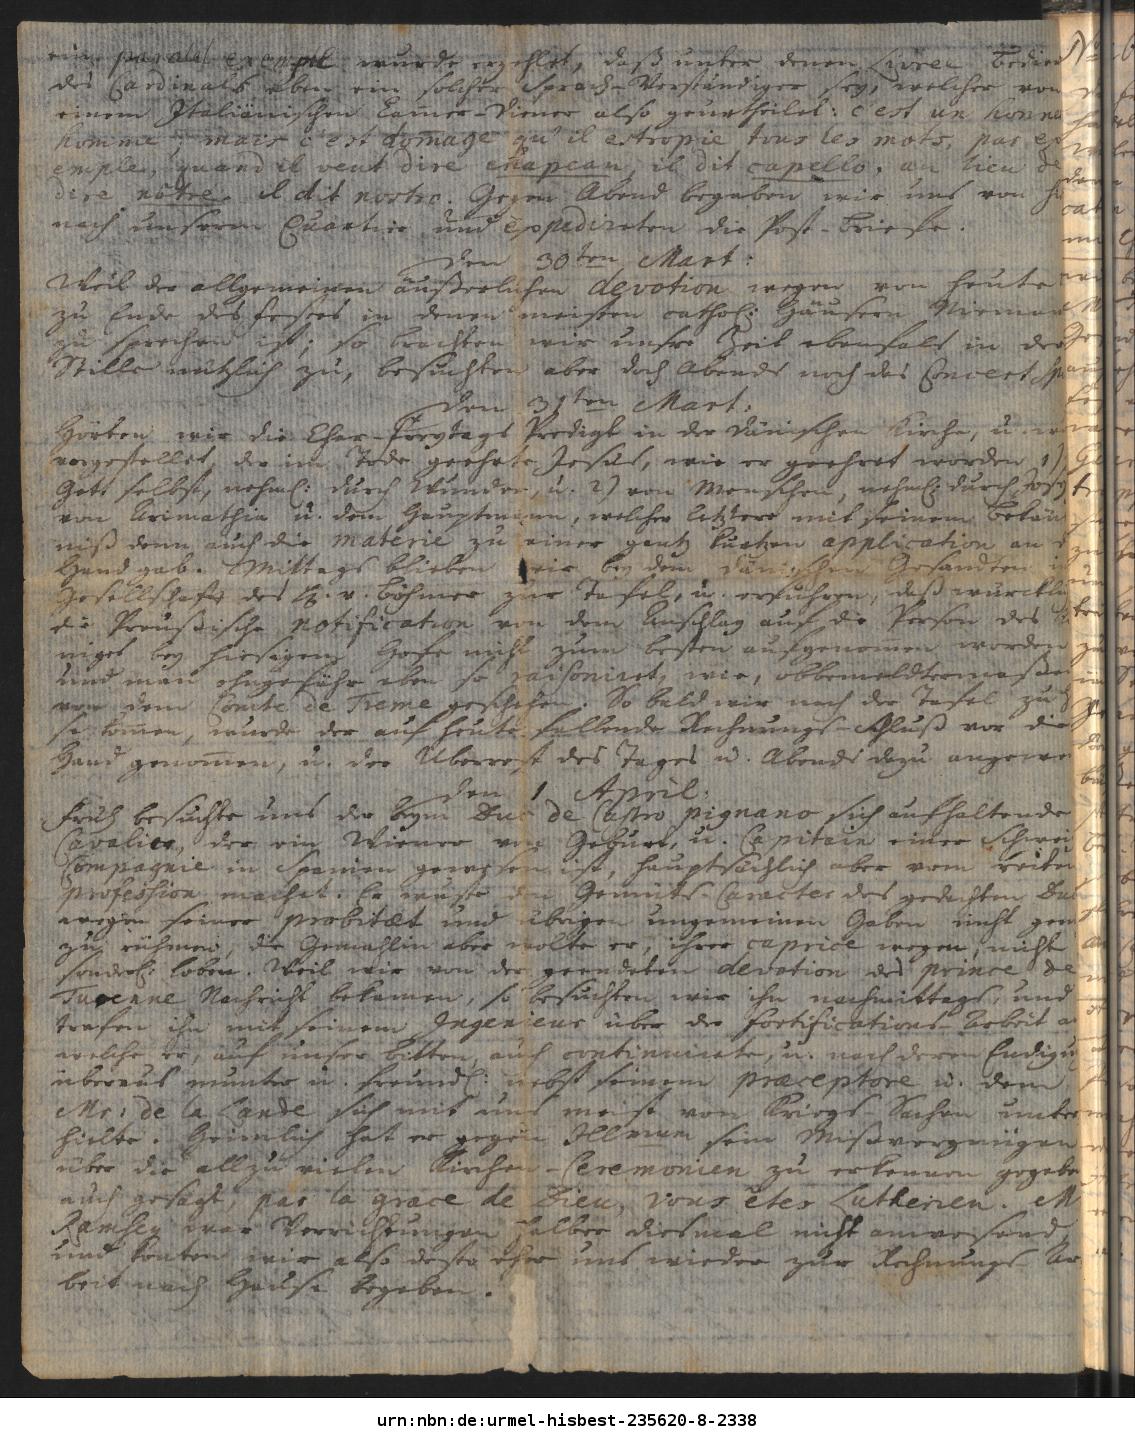 ein paralel exempel wurde erzehlet, daß unter denen Livree Bedien
des Cardinals eben ein solcher Sprach-Verständiger sey, welcher von
einem Italiänischen Camer-Diener also geurtheilet: c'est un honne
homme; mais c'est domage qu'il estropie tous les mots, par ex
emple, quand il veut dire chapeau, il dit capello, au lieu de
dire nôtre, il dit nostro. Gegen Abend begaben wir uns von
nach unserm Quartier und expedireten die Post-Briefe.
den 30ten Mart:
Weil der allgemeinen äußerlichen devotion wegen von heute
zu Ende des Festes in denen meisten cathol: Häusern Niemand
zu sprechen ist; so brachten wir unsre Zeit ebenfals in der
Stille nützlich zu, besuchten aber doch Abends noch das Concert
den 31ten Mart:
Hörten wir die Char-Freytags Predigt in der Dänischen Kirche, u.
vorgestellet, der im Tode geehrte Jesus, wie er geehret worden 1)
Gott selbst, nehml: durch Wunder, u. 2) von Menschen, nehml: durch
von Arimathia u. dem Hauptmann, welcher letztere mit seinem Bekän
niß denn auch die materie zu einer gantz kurtzen application an
Hand gab. Mittags blieben wir bey dem Dänischen Gesandten in
Gesellschaft des H. v. Böhmer zur Tafel, u. erfuhren, daß würckl
die Preußische notification von dem Anschlag auf die Person des
niges bey hiesigem Hofe nicht zum besten aufgenomen worden
und man ohngefähr eben so raisoniret, wie, obbemeldtermaßen
von dem Comte de Treme geschehen. So bald wir nach der Tafel zu
se komen, wurde der auf heute fallende Rechnungs-Schluß vor die
Hand genomen, u. der Uberrest des Tages u. Abends dazu angewe
den 1 April:
Früh besuchte uns der beym Duc de Castro pignano sich aufhaltende
Cavalier, der ein Wiener von Geburt, u. Capitain einer Schwei
Compagnie in Spanien gewesen ist, hauptsächlich aber vom reiten
profession machet. Er wuste den Gemüts-Caracter des gedachten Duc
wegen seiner probitæt und übrigen ungemeinen Gaben nicht gen
zu rühmen, die Gemahlin aber wolte er, ihrer caprice wegen, nicht
sonderl: loben. Weil wir von der geendeten devotion des prince de
Turenne Nachricht bekamen, so besuchten wir ihn nachmittags, und
trafen ihn mit seinem Ingenieur über der fortifications-Arbeit a
welche er, auf unser bitten, auch continuirete, u. nach deren Endigu
überaus munter u. freundl: nebst seinem præceptore u. dem
Mr: de la Lande sich mit uns meist von Kriegs-Sachen unter
hielte. Heimlich hat er gegen Illmum sein Misvergnügen
über die allzu vielen Kirchen-Ceremonien zu erkennen gegebe
auch gesagt, par la grace de Dieu, vous êtes Lutherien. M
Ramsey war Verrichtungen halber diesmal nicht anwesend,
und konten wir also desto eher uns wieder zur Rechnungs-Ar
beit nach Hause begeben.
urn:nbn:de:urmel-hisbest-235620-8-2338